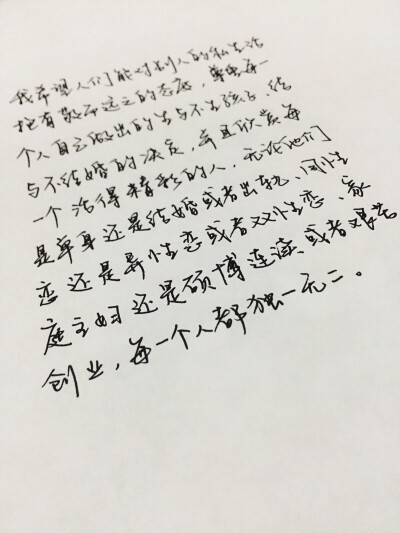 我希望人们能对别人的私生活
抱有敬而远之的态度，尊重每一
个人自主做出的生与不生孩子、结
与不结婚的决定，并且欣赏每
一个活得精彩的人，无论他们
是单身还是结婚或者出轨、同性
恋还是异性恋或者双性恋、家
庭主妇还是硕博连读或者艰苦
创业，每一个人都独一无二。